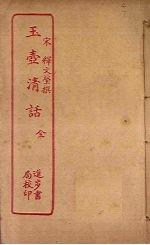 宋 釋文瑩撰
玉壺清話 全
進步書
局校印